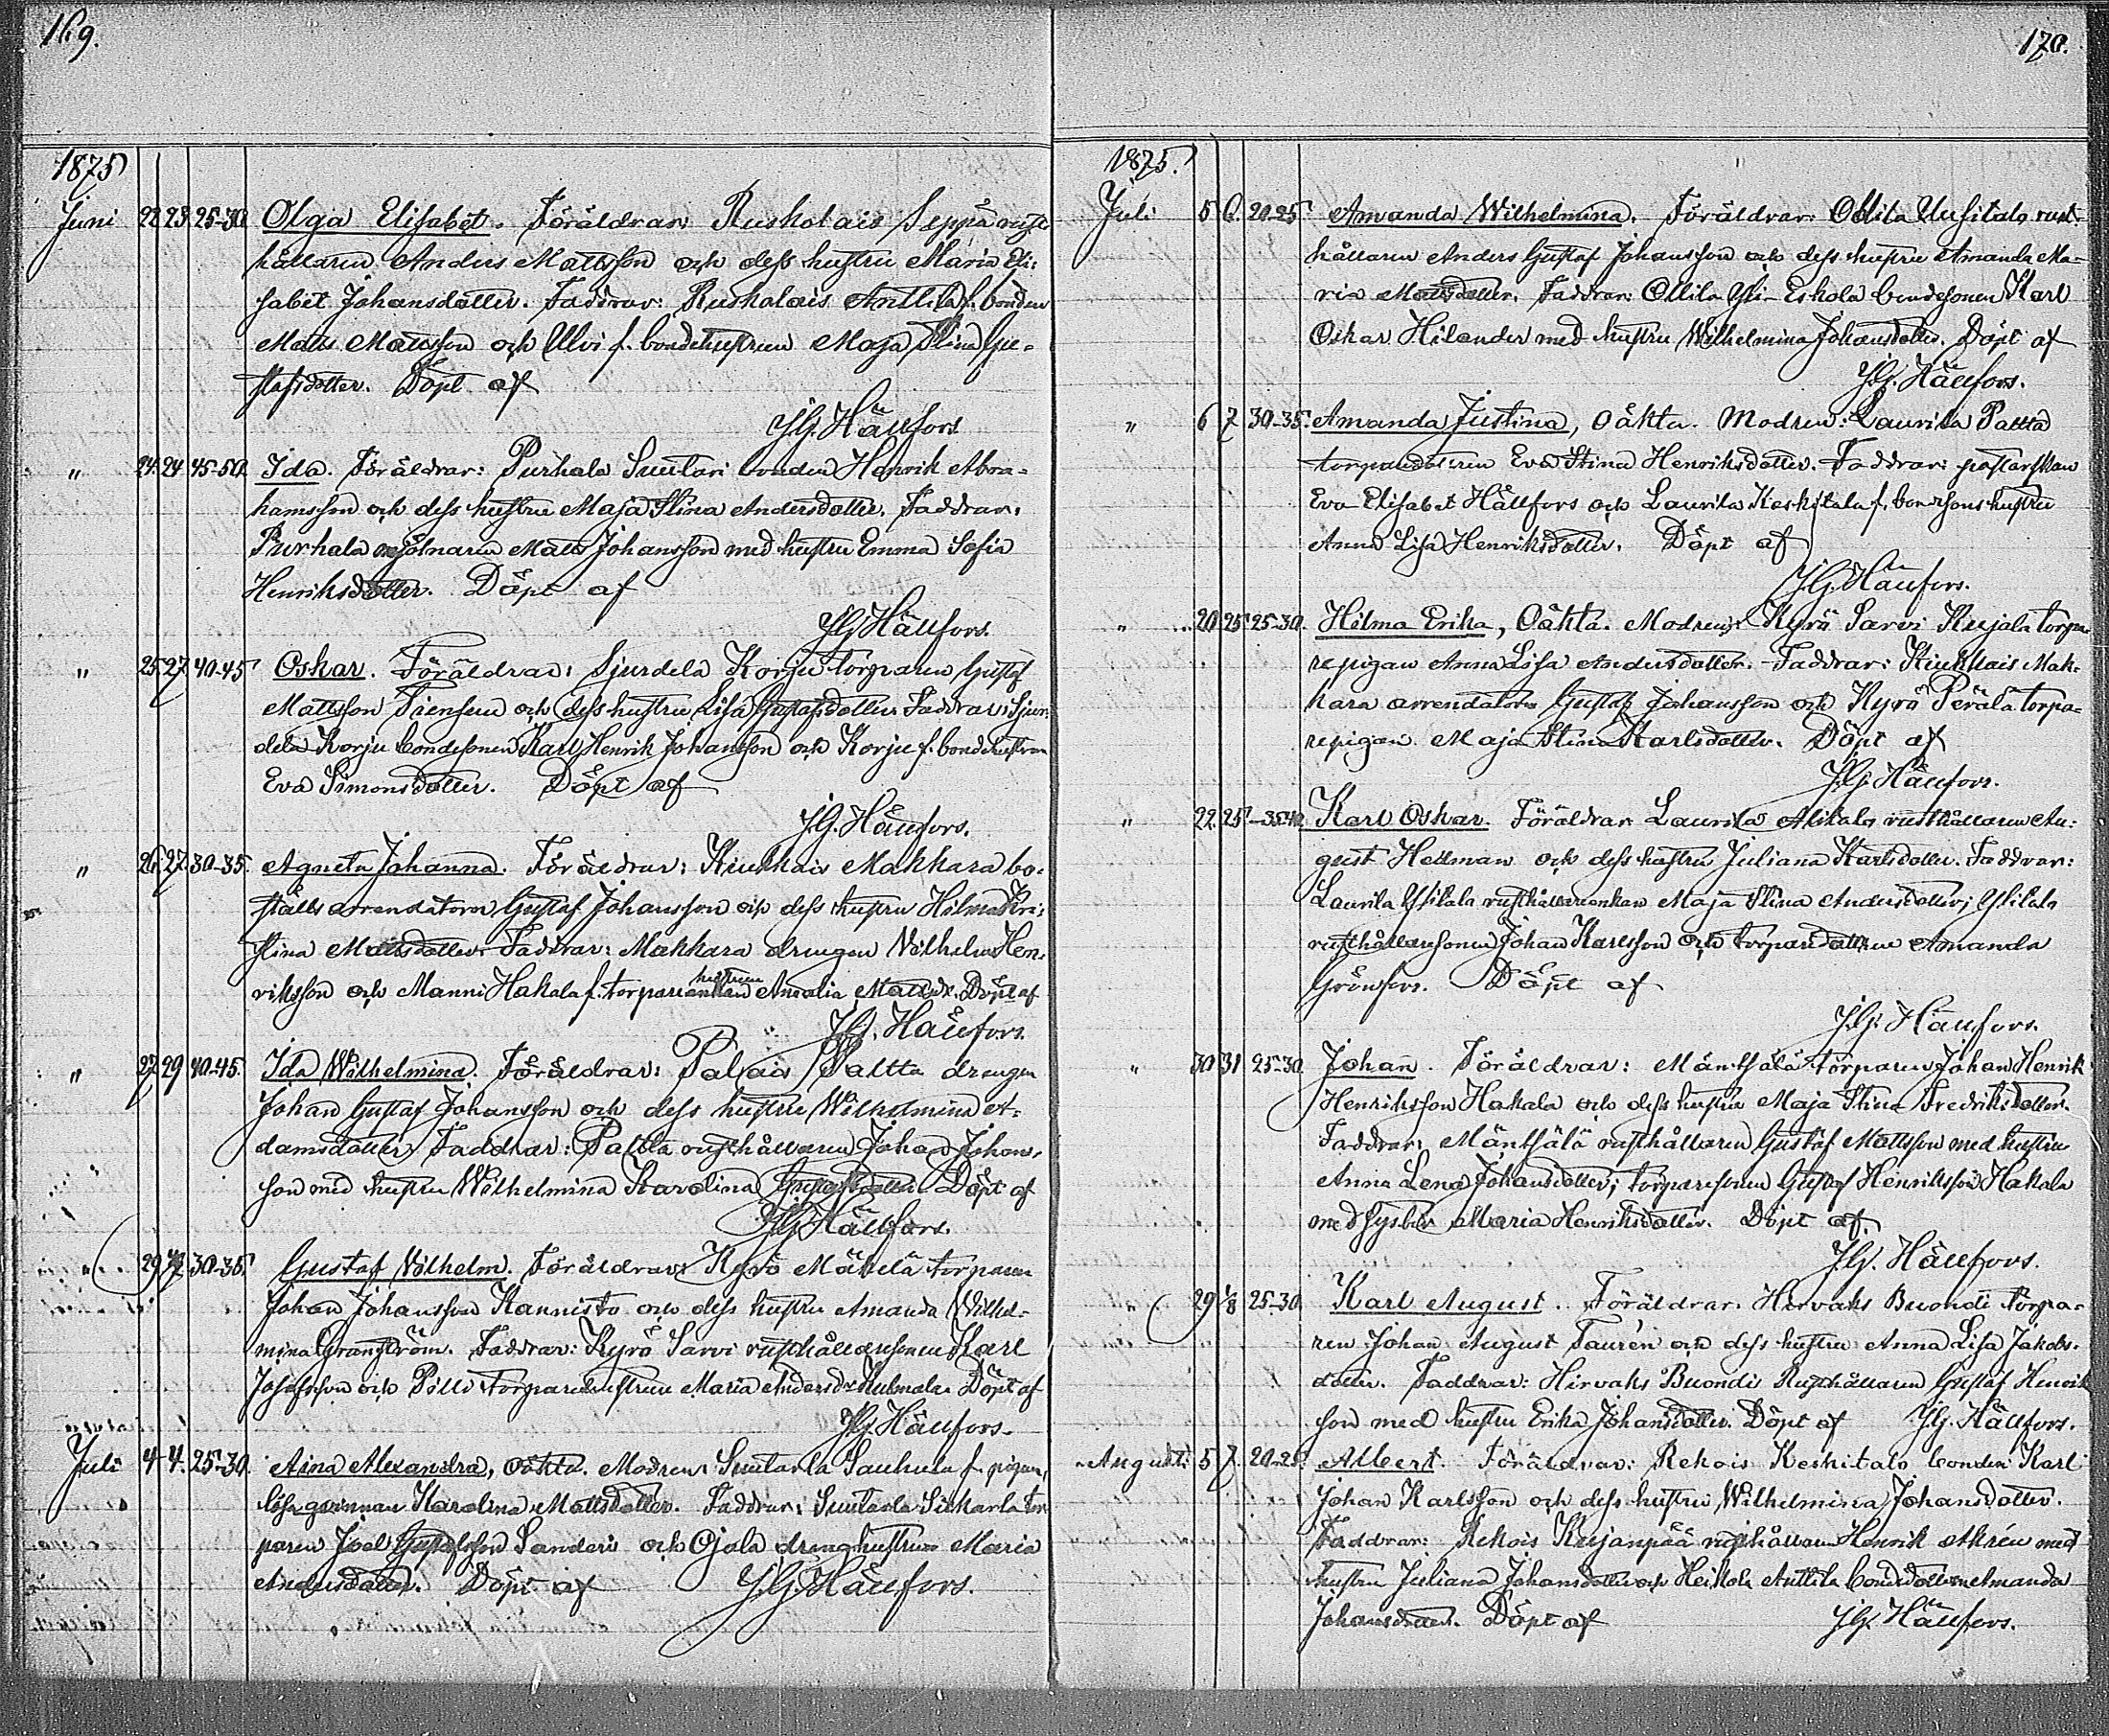 169.
1875
Juni 22 23 25-30 Olga Elisabet. Föräldrar: Ruskolais Seppä rust-
hållaren Anders Mattsson och dess hustru Maria Eli-
sabet Johansdotter. Faddrar: Ruskolais Anttila f. bonden
Matts Mattsson och Ulvi f. bondehustrun Maja Stina Gu-
stafsdotter. Döpt af
J.G. Hällfors
" 24 24 45-50. Ida. Föräldrar: Purhala Suutari bonden Henrik Abra-
hamsson och dess hustru Maja Stina Andersdotter. Faddrar:
Purhala mjölnaren Matts Johansson med hustru Emma Sofia
Henriksdotter. Döpt af
J.G. Hällfors.
" 25 27 40-45 Oskar. Föräldrar: Sjurdela Korju torparen Gustaf
Mattsson och dess hustru Lisa Gustafsdotter. Faddrar: Sjur-
dela Korju bondesonen Karl Henrik Johansson och Korju f. bondehustrun
Eva Simonsdotter. Döpt af
J.G. Hällfors.
" 26 27 30-35. Agneta Johanna. Föräldrar: Kiukkais Makkara bo-
ställs arrendatorn Gustaf Johansson och dess hustru Hilma Kri-
stina Mattsdotter. Faddrar: Makkara drengen Vilhelm Hen-
riksson och Manni Hakala f. torpare hustrun Amalia Mattsdr. Döpt af
J.G. Hällfors.
" 27 29 40-45. Ida Wilhelmina. Föräldrar: Paltta drengen
Johan Gustaf Johansson och dess hustru Wilhelmina A-
damsdotter. Faddrar: Paltta rusthållaren Johan Johans-
son med hustru Wilhelmina Karolina Gustafsdotter. Döpt af
J.G. Hällfors.
29 30-35. Gustaf Vilhelm. Föräldrar: Kyrö Mäkelä torparen
Johan Johansson Kannisto och dess hustru Amanda Wilhel-
mina Granström. Faddrar: Kyrö Sarvi rusthållaresonen Karl
Josefsson och Pölli torparehustrun Maria Andersdr Döpt af
J.G. Hällfors.
Juli 4 4. 25-30. Aina Alexandra, oäkta. Modren: Suutarla f. pigan,
Karolina Mattsdotter. Faddrar: Suutarla tor-
paren Joel Gustafsson Sanderi och Ojala drenghustrun Maria
Andersdotter. Döpt af J.G. Hällfors.
170.
1875.
Juli 5 6. 20-25 Amanda Wilhelmina. Föräldrar: Ollila Uusitalo rust-
hållaren Anders Gustaf Johansson och dess hustru Amanda Ma-
ria Mattsdotter. Faddrar: Ollila Yli-Eskola bondesonen Karl
Oskar Hilander med hustru Wilhelmina Johansdotter. Döpt af
J.G. Hällfors.
" 6 7 30-35. Amanda Justina, oäkta. Modren: Laurila Paltta
torparedottren Eva Stina Henriksdotter. Faddrar: pastorskan
Eva Elisabet Hällfors och Laurila Keskitalo f. bondsons hustru
Anna Lisa Henriksdotter. Döpt af
J.G. Hällfors.
" 20 25 25-30. Hilma Erika, Oäkta. Modren: Kyrö Sarvi Kujala torpa-
repigan Anna Lisa Andersdotter. Faddrar: Kiukkais Mak-
kara arrendatorn Gustaf Johansson och Kyrö Perälä torpa-
repigan Maja Stina Karlsdotter. Döpt af
J.G. Hällfors.
" 22 25 35-40 Karl Oskar. Föräldrar Laurila Alitalo rusthållaren Au-
gust Hellman och dess hustru Juliana Karlsdotter. Faddrar:
Laurila Ylitalo rusthållareenkan Maja Stina Andersdotter; Ylitalo
rusthållaresonen Johan Karlsson och torparedottren Amanda
Grönfors. Döpt af
J.G. Hällfors.
" 30 31 25-30. Johan. Föräldrar: Mäntsälä torparen Johan Henrik
Henriksson Hakala och dess hustru Maja Stina Fredriksdotter.
Faddrar: Mäntsälä rusthållaren Gustaf Mattsson med hustru
Anna Lena Johansdotter; torparesonen Gustaf Henriksson Hakala
med syster Maria Henriksdotter. Döpt af
J.G. Hällfors.
" 29 1/8 25-30 Karl August. Föräldrar: Hirvaks Buondi torpa-
ren Johan August Taurén och dess hustru Anna Lisa Jakobs-
dotter. Faddrar: Hirvaks Buondi Rusthållaren Gustaf Henrik-
son med hustru Erika Johansdotter. Döpt af J.G. Hällfors.
Augusti 5 7. 20-25 Albert. Föräldrar: Rekois Keskitalo bonden Karl
Johan Karlsson och dess hustru Wilhelmina Johansdotter.
Faddrar: Rekois Kujanpää rusthållaren Henrik Ahrén med
hustru Juliana Johansdotter och Heikola Anttila bondedottren Amanda
Johansdotter. Döpt af J.G. Hällfors.